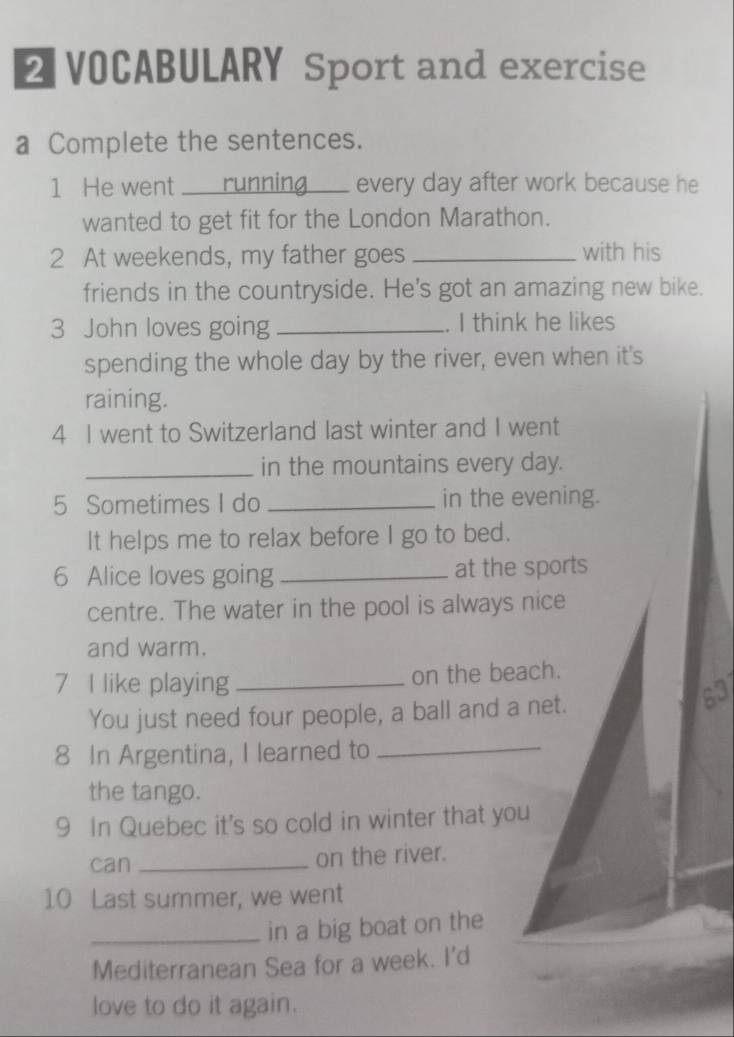 2 VOCABULARY Sport and exercise
a Complete the sentences.
1 He went ____running____ every day after work because he
wanted to get fit for the London Marathon.
2 At weekends, my father goes ____________ with his
friends in the countryside. He's got an amazing new bike.
3 John loves going ____________. I think he likes
spending the whole day by the river, even when it's
raining.
4 I went to Switzerland last winter and I went
____________ in the mountains every day.
5 Sometimes I do ____________ in the evening.
It helps me to relax before I go to bed.
6 Alice loves going ____________ at the sports
centre. The water in the pool is always nice
and warm.
7 I like playing ____________ on the beach.
You just need four people, a ball and a net.
8 In Argentina, I learned to ____________
the tango.
9 In Quebec it's so cold in winter that you
can ____________ on the river.
10 Last summer, we went
____________ in a big boat on the
Mediterranean Sea for a week. I'd
love to do it again.